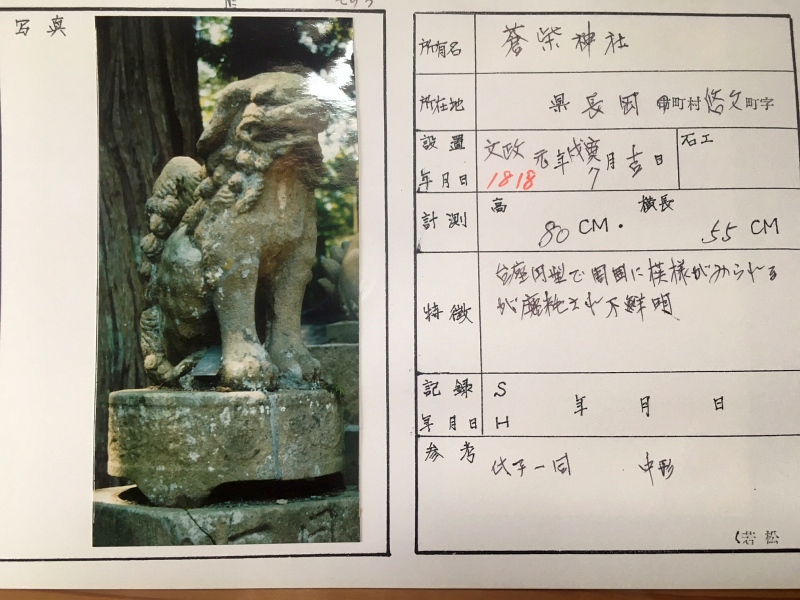 写真
所有名 蒼柴神社
所在地 県長岡市町村悠久町字
設置年月日 文政元年戊寅7月吉日
1818
石工
計測 高 80CM. 横長 55CM
特徴 台座円型で周囲に模様がみられる
が磨耗され不鮮明
記録年月日 S H 年 月 日
参考 氏子一同 中形
(若松